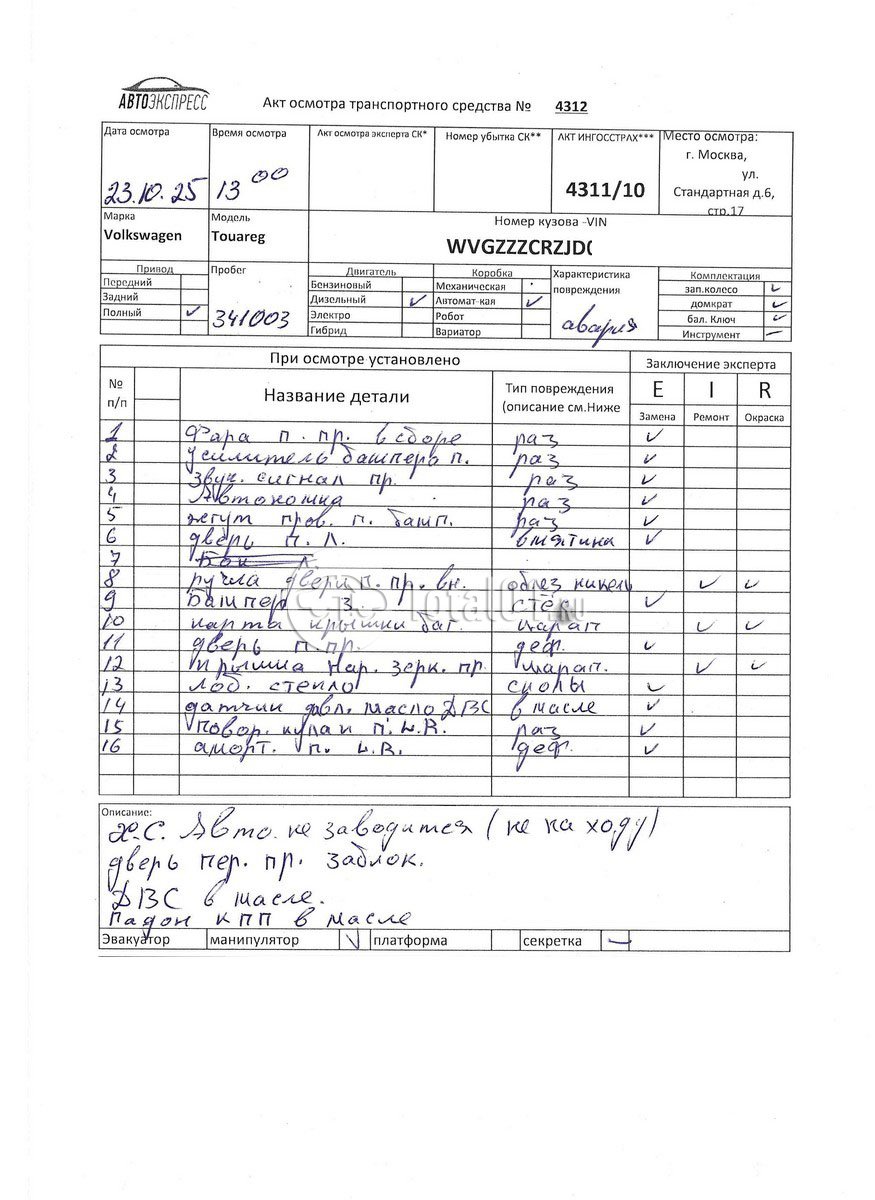 АВТОЭКСПРЕСС
Акт осмотра транспортного средства № 4312
Дата осмотра
23.10.25
Время осмотра
13 00
Акт осмотра эксперта СК*
Номер убытка СК**
АКТ ИНГОССТРАХ***
4311/10
Место осмотра:
г. Москва,
ул.
Стандартная д.6,
стр.17
Марка
Volkswagen
Модель
Touareg
Номер кузова -VIN
WVGZZZCRZJD(
Привод
Передний
Задний
Полный ✓
Пробег
341003
Двигатель
Бензиновый
Дизельный ✓
Электро
Гибрид
Коробка
Механическая
Автомат-кая ✓
Робот
Вариатор
Характеристика
повреждения
авария
Комплектация
зап.колесо ✓
домкрат ✓
бал. Ключ ✓
Инструмент –
При осмотре установлено
Заключение эксперта
№
п/п
Название детали
Тип повреждения
(описание см.Ниже
E I R
Замена Ремонт Окраска
1 Фара п. пр. в сборе раз ✓
2 усилитель бампера п. раз ✓
3 звук. сигнал пр. раз ✓
4 Автономка раз ✓
5 жгут пров. п. бамп. раз ✓
6 дверь п. л. вмятина ✓
7
8 ручка двери п. пр. вн. облез никель ✓ ✓
9 Бампер з. стёс ✓
10 карта крышки баг. царап ✓ ✓
11 дверь п.пр. деф. ✓
12 крышка нар. зерк. пр. царап. ✓ ✓
13 лоб. стекло сколы ✓
14 датчик давл. масло ДВС в масле ✓
15 повор. кулак п. L.R. раз ✓
16 аморт. п. L.R. деф. ✓
TotalO1.RU
Описание:
Х.С. Авто не заводится (не на ходу)
дверь пер. пр. заблок.
ДВС в масле.
Падон КПП в масле
Эвакуатор манипулятор ✓ платформа секретка –